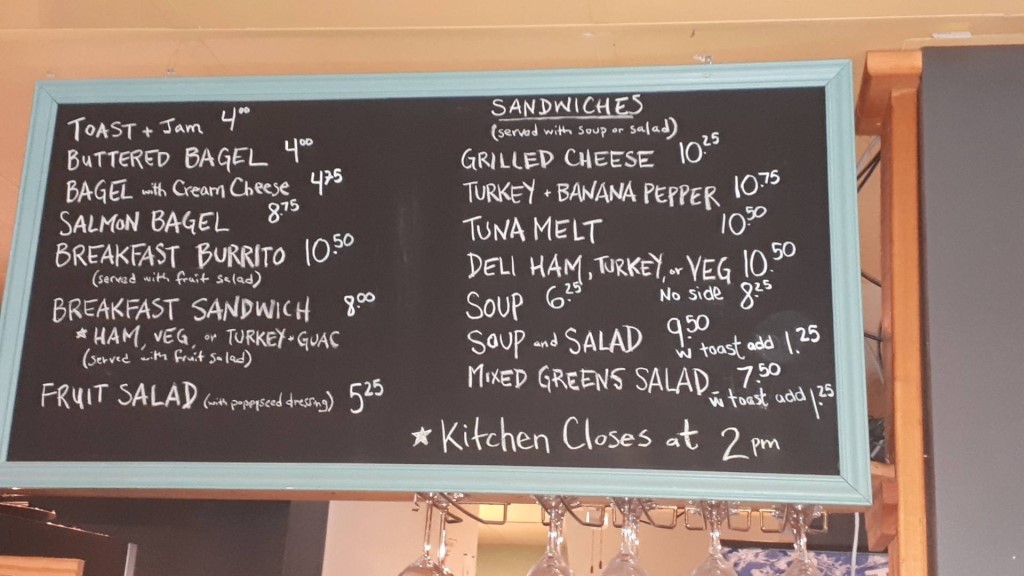 TOAST + Jam 4.00
BUTTERED BAGEL 4.00
BAGEL with Cream Cheese 4.75
SALMON BAGEL 8.75
BREAKFAST BURRITO 10.50
(served with fruit salad)
BREAKFAST SANDWICH 8.00
* HAM, VEG, or TURKEY + GUAC
(served with fruit salad)
FRUIT SALAD (with poppyseed dressing) 5.25
SANDWICHES
(served with soup or salad)
GRILLED CHEESE 10.25
TURKEY + BANANA PEPPER 10.75
TUNA MELT 10.50
DELI HAM, TURKEY, or VEG 10.50
No side 8.25
SOUP 6.25
SOUP and SALAD 9.50
w toast add 1.25
MIXED GREENS SALAD 7.50
w toast add 1.25
★ Kitchen Closes at 2pm